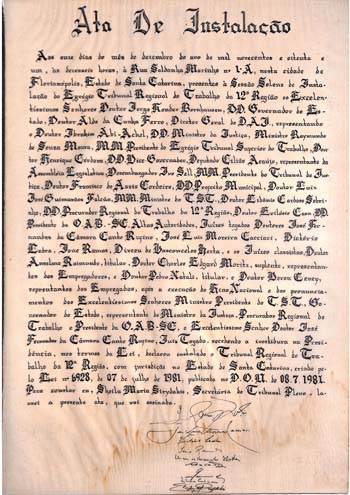 Ata De Instalação
Aos onze dias do mês de dezembro do ano de mil novecentos e oitenta e
um, às dezesseis horas, à Rua Saldanha Marinho nº 1-A, nesta cidade de
Florianópolis, Estado de Santa Catarina, presentes à Sessão Solene de Insta-
lação do Egrégio Tribunal Regional do Trabalho da 12ª Região os Excelen-
tíssimos Senhores Doutor Jorge Konder Bornhausen, DD. Governador do Es-
tado, Doutor Aldo da Cunha Ferro, Diretor Geral do D.A.J., representando
o Doutor Ibrahim Abi-Ackel, DD. Ministro da Justiça, Ministro Raymundo
de Souza Moura, MM. Presidente do Egrégio Tribunal Superior do Trabalho, Dou-
tor Henrique Córdova, DD. Vice Governador, Deputado Epitácio, representante da
Assembléia Legislativa, Desembargador Ivo Sell, MM. Presidente do Tribunal de Jus-
tiça, Doutor Francisco de Assis Cordeiro, DD. Prefeito Municipal, Doutor Luiz
José Guimarães Falcão, MM. Ministro do T.S.T., Doutor Cardoso Sobri-
nho, DD. Procurador Regional do Trabalho da 12ª Região, Doutor DD.
Presidente do O.A.B.-SC, Altas Autoridades, Juízes togados Doutores José Fer-
nandes da Câmara Canto Rufino, José Luiz Moreira Cacciari,
Ramos, Umberto de Vasconcelos e os Juízes classistas, Doutor
Raimundo, titular, Doutor Charles Edgard Moritz, suplente, representan-
tes dos Empregadores, e Doutor Pedro Natali, titular, e Doutor
representantes dos Empregados, após a execução do Hino Nacional e dos pronuncia-
mentos dos Excelentíssimos Senhores Ministro Presidente do T.S.T., Go-
vernador do Estado, representante do Ministro da Justiça, Procurador Regional do
Trabalho e Presidente do O.A.B-SC, o Excelentíssimo Senhor Doutor José
Fernandes da Câmara Canto Rufino, Juiz Togado, recebendo a investidura na Presi-
dência, nos termos da Lei, declarou instalado o Tribunal Regional do Tra-
balho da 12ª Região, com jurisdição no Estado de Santa Catarina, criado pe-
la Lei nº 6928, de 07 de julho de 1981, publicada no D.O.U. de 08.7.1981.
Para constar eu, Sheila Maria Secretária do Tribunal Pleno, la-
vrei a presente ata, que vai assinada.